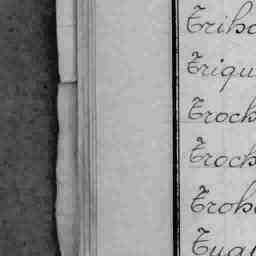 Triho
Triqu
Trock
Trock
Troho
Tuqu